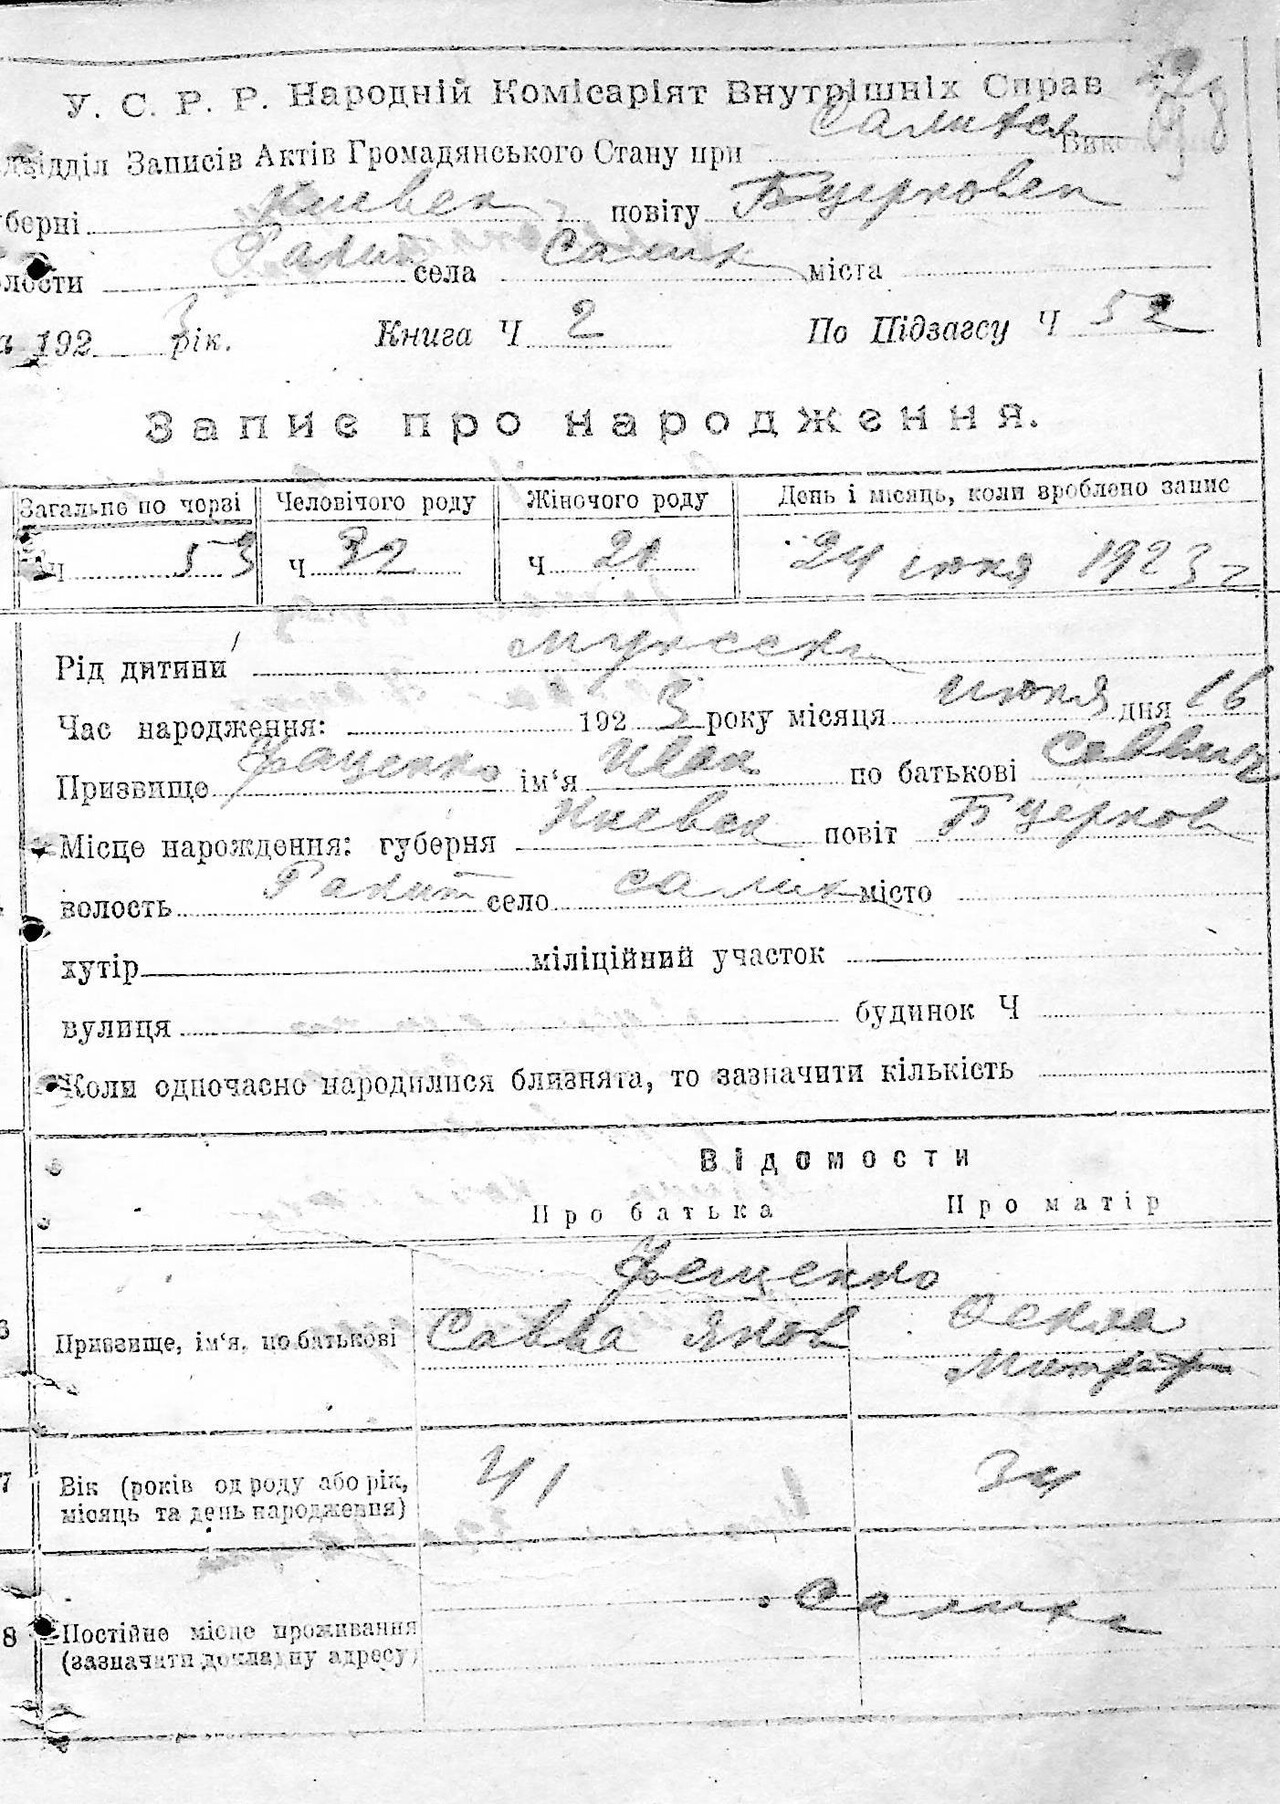 У. С. Р. Р. Народній Комісаріят Внутрішніх Справ
відділ Записів Актів Громадянського Стану при
берні Киевск повіту Бцерковск
лости Ракит села Салих міста
а 1923 рік. Книга Ч 2 По Підзагсу Ч 52
Запис про народження.
Загальне по черзі Человічого роду Жіночого роду День і місяць, коли вроблено запис
Ч 53 Ч 32 Ч 20 24 июня 1923
Рід дитини мужески
Час народження: 1923 року місяця июня дня 16
Призвище Фащенко ім'я Иван по батькові Саввич
Місце нарождення: губерня Киевск повіт Бцерков
волость Ракит село Салих місто
хутір міліційний участок
вулиця будинок Ч
Коли одночасно народилися близнята, то зазначити кількість
Відомости
Про батька Про матір
Фещенко
Призвище, ім'я, по батькові Савва Яков
Митроф
7 Вік (років од роду або рік, місяць та день народження) 41 34
8 Постійне місце проживання (зазначити докладну адресу)